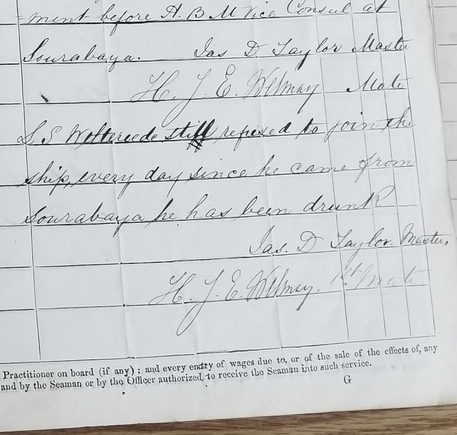 ment before H. B. M Vice Consul at
Sourabaya. Jas D. Taylor Master
H. J. E. Mate
S. S still refused to join the
ship, every day since he came from
Sourabaya he has been drunk
Jas. D Taylor. Master.
H. J. E. 1st Mate
Practitioner on board (if any): and every entry of wages due to, or of the sale of the effects of, any
and by the Seaman or by the Officer authorized, to receive the Seaman into such service.
G